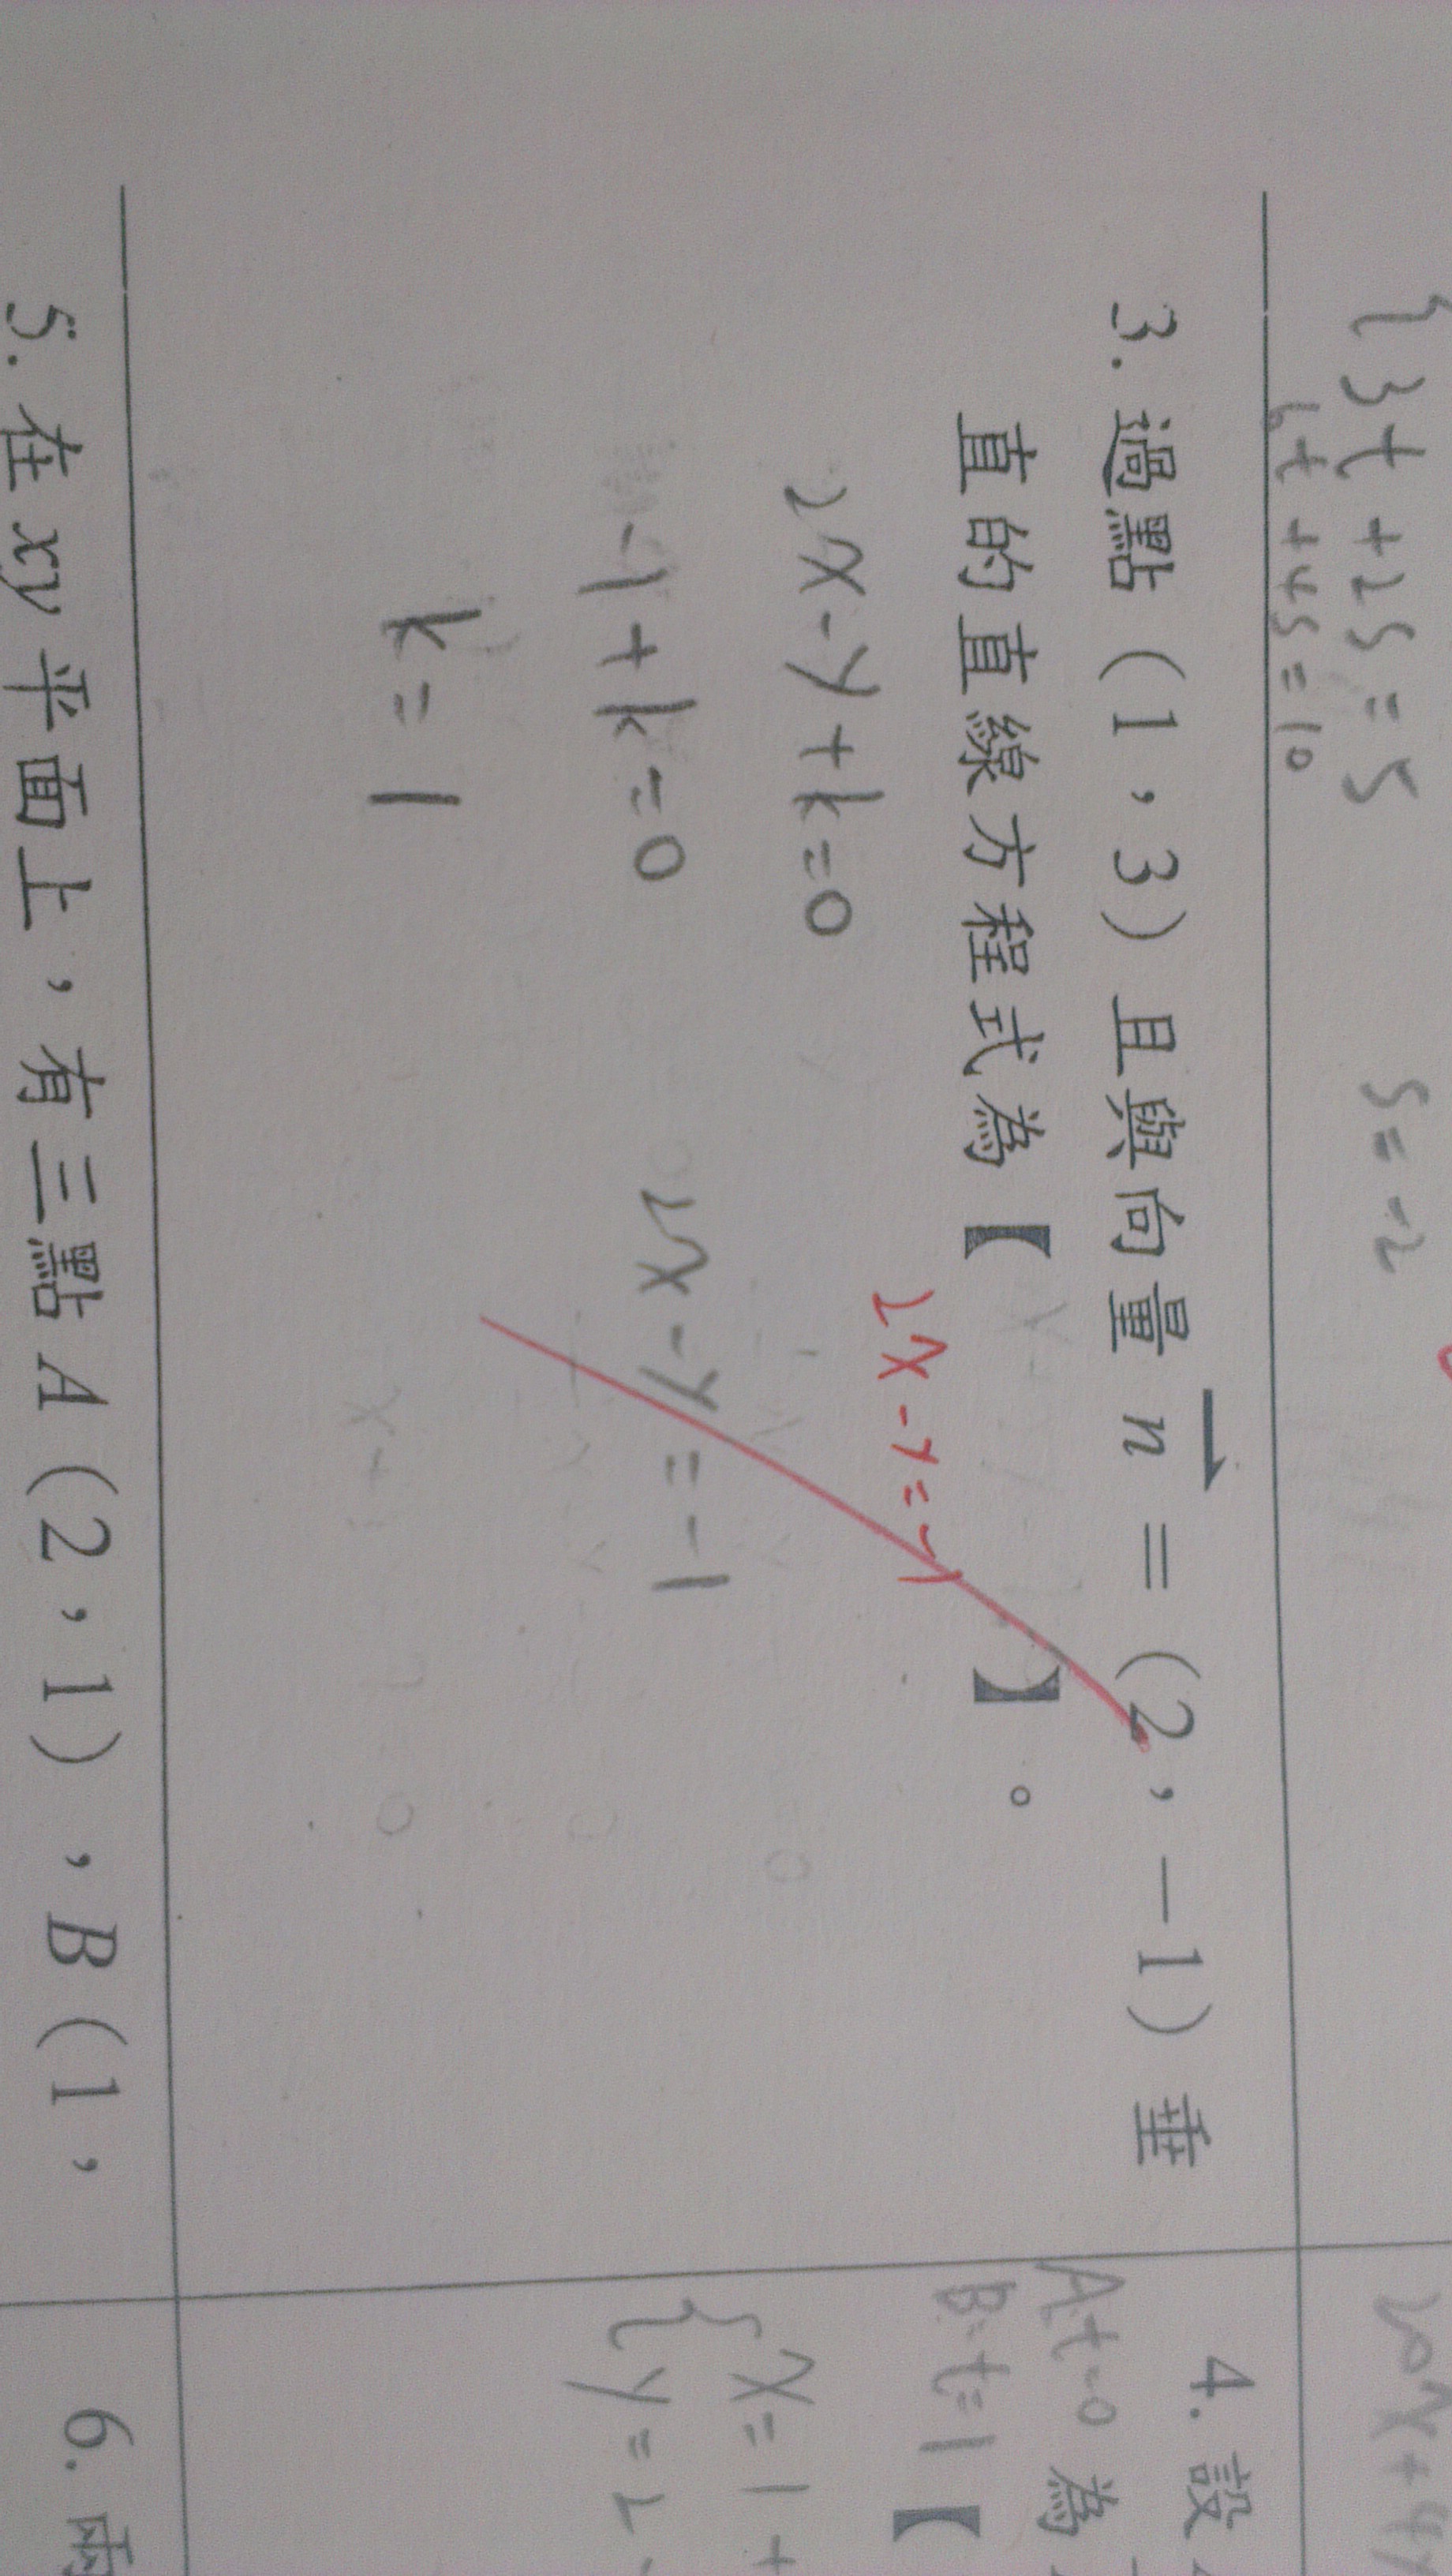 {3t+2s=5
6t+4s=10
s=-2
3. 過點（1，3）且與向量 n =（2，-1）垂
直的直線方程式為【 】。
2x-y=-1
2x-y+k=0
-1+k=0
k=1
2x-y=-1
4. 設
A t=0 為
B t=1 【
{x=1+
y=2-
5. 在 xy 平面上，有三點 A（2，1），B（1，
6. 兩